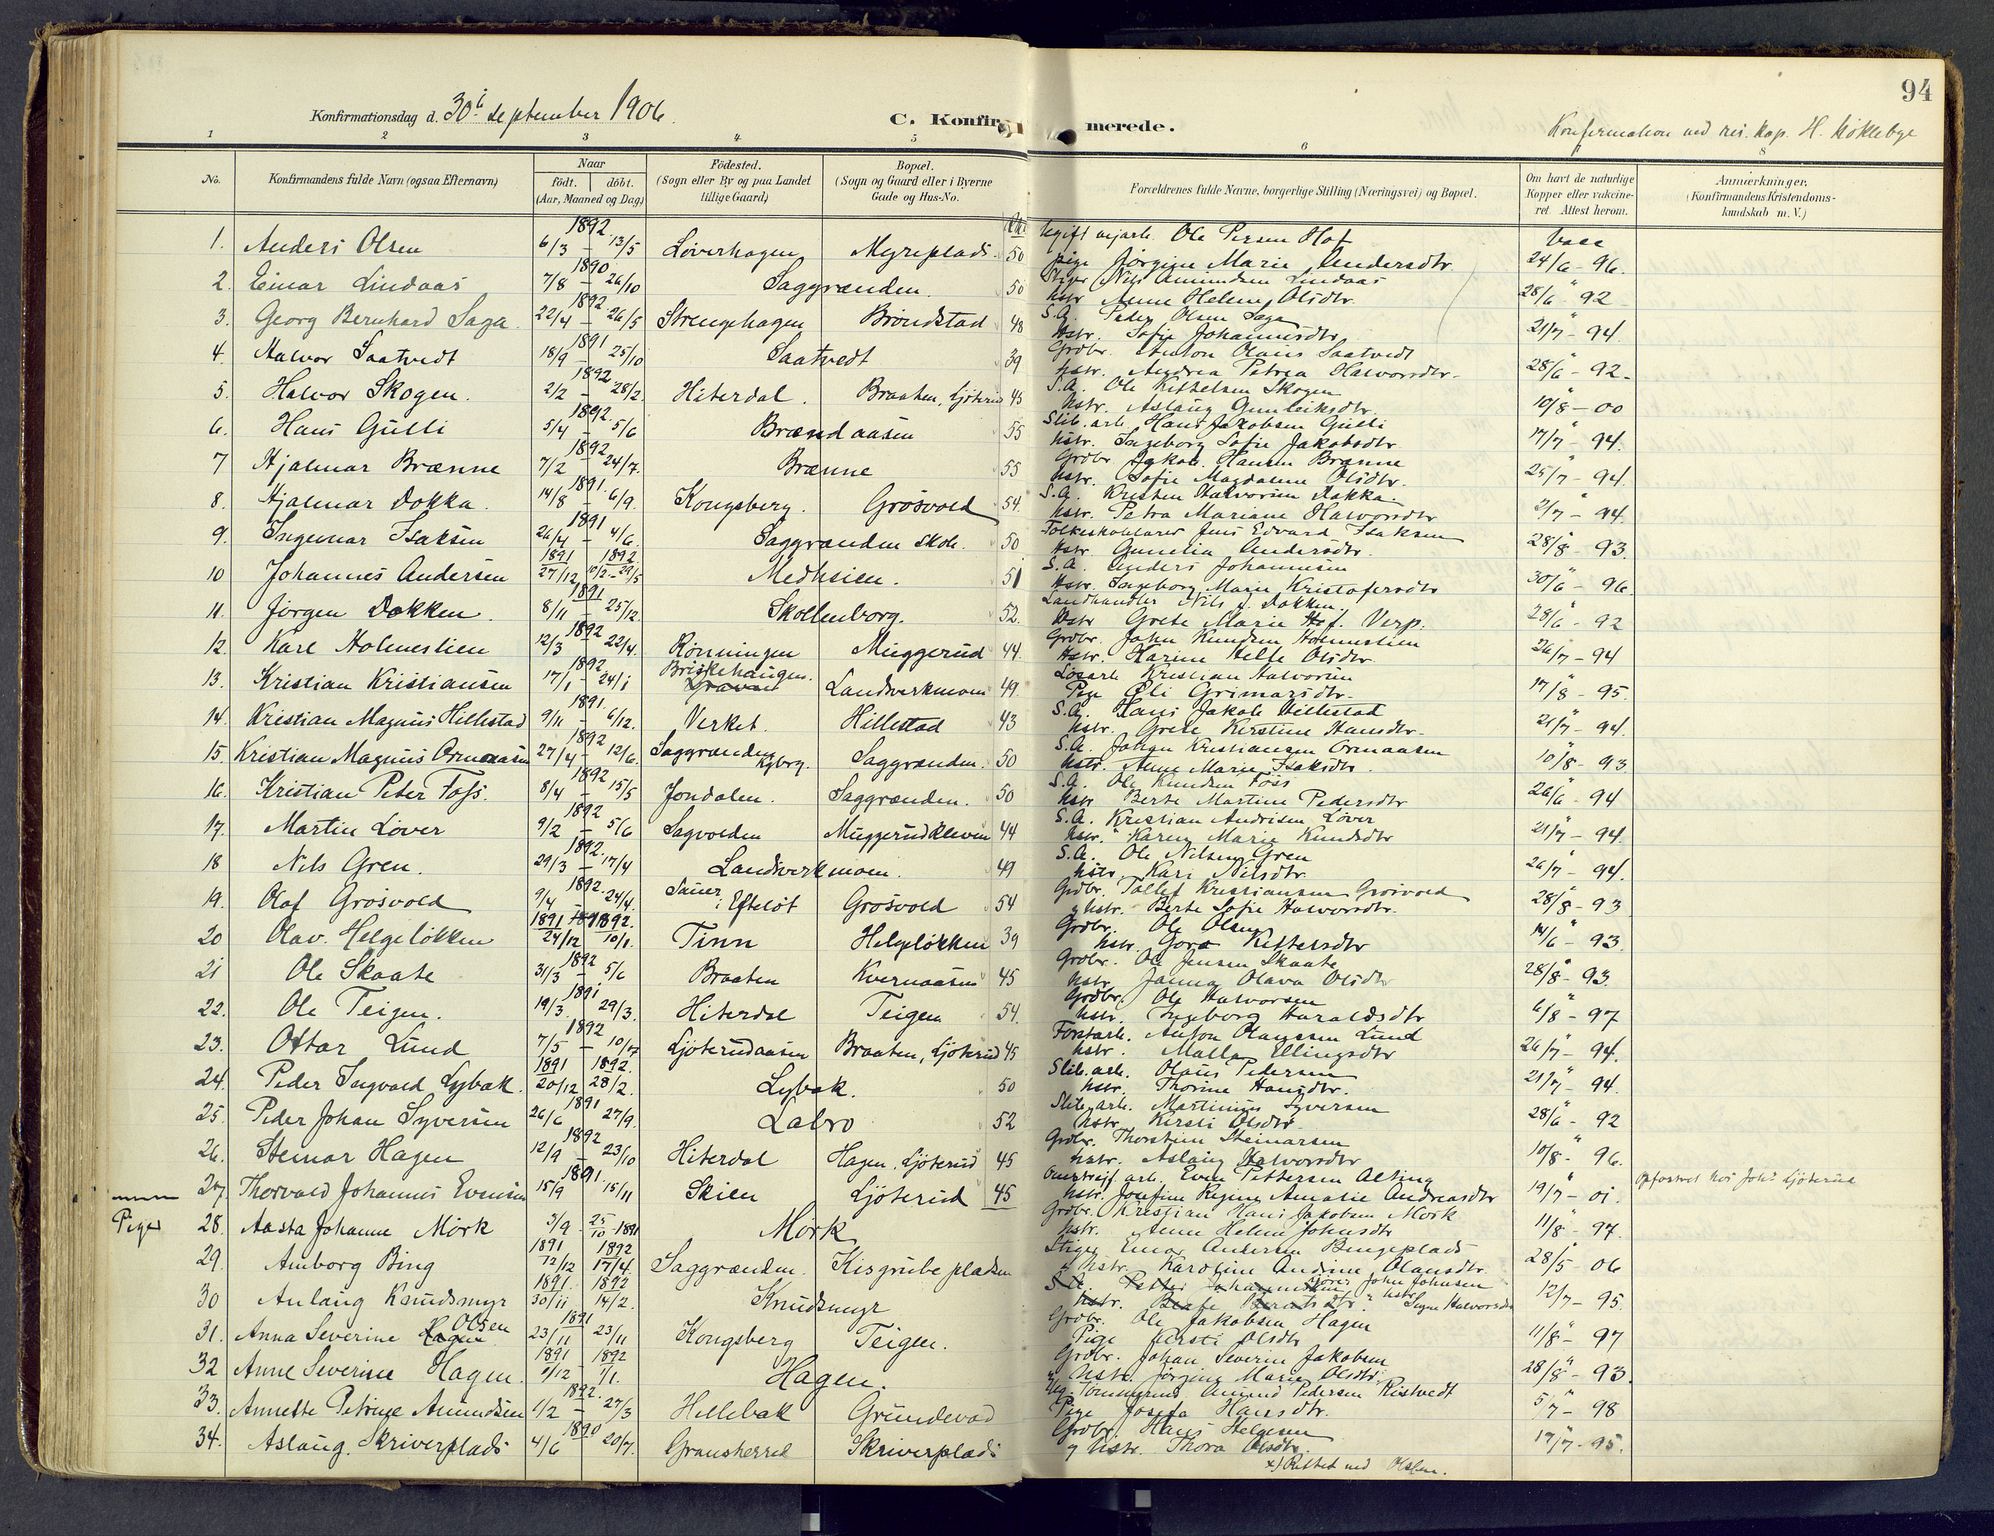 94
Konfirmationsdag d. 30i september 1906.
C. Konfirmerede.
Konfirmation ved res. kap. H. Kolklebye
1 2 3 4 5 6 8
No.
Konfirmandens fulde Navn (ogsaa Efternavn)
Naar
födt. döbt.
(Aar, Maaned og Dag)
Födested.
(Sogn eller By og paa Landet
tillige Gaard)
Bopæl.
(Sogn og Gaard eller i Byerne
Gade og Hus-No.
Forældrenes fulde Navne, borgerlige Stilling (Næringsvei) og Bopæl.
Om havt de naturlige
Kopper eller vakcine-
ret. Attest herom.
Anmærkninger.
(Konfirmandens Kristendoms-
kundskab m. V.)
1. Anders Olsen 1892 6/3 – 13/5 Löverhagen Myreplads 50 Ugift arb. Ole Persen Hof
pige Jørgine Marie Andersdtr. Vacc 24/6 - 96.
2. Einar Lindaas 1890 7/8 – 26/10 Saggrenden. 50 Stiger Nils Amundsen Lindaas
hstr Anne Helene Olsdtr. 28/6 - 92
3. Georg Bernhard Saga 1892 22/4 – 26/5 Strengehagen Bröndstad 48 S.A. Peder Olsen Saga
Hstr. Sofie Johannesdtr. 21/7 - 94
4. Halvor Saatvedt 1891 18/9 – 25/10 Saatvedt 39 Grdbr. Anton Olaus Saatvedt
hstr. Andrea Petrea Halvorsdtr. 28/6 - 92
5. Halvor Skogen. 1892 2/2 – 28/2 Hiterdal. Braaten, Ljöterud 45 S.A. Ole Kittelsen Skogen
hstr. Aslaug Gunleiksdtr. 10/8 - 00
6. Hans Gulli 1892 5/4 – 5/6 Brændaasen 55 Slib. arb. Hans Jakobsen Gulli
hstr. Ingeborg Sofie Jakobsdtr. 17/7 - 94.
7 Hjalmar Brænne 1892 7/2 – 24/7. Brænne 55 Grdbr Jakob Hansen Brænne
hstr. Sofie Magdalene Olsdtr. 25/7 - 94.
8. Hjalmar Dokka. 1891 14/8 – 6/9. Kongsberg. Grosvold 54 S.A. Kristen Halvorsen Dokka.
hstr. Petra Mariane Halvorsdtr 2/7 - 94.
9. Ingemar Isaksen 1891 26/4 – 4/6. Saggrenden skole. 50 Folkeskolelærer Jens Edvard Isaksen
Hstr. Gunelia Andersdtr. 28/8 - 93.
10 Johannes Andersen 1891 27/12 1892 10/2 – 29/5 Medhsien. 51 S.A. Anders Johannesen
Hstr. Ingeborg Marie Kristofersdtr 30/6 - 96
11. Jørgen Dokken. 1891 8/11 – 25/12. Skollenborg. 52. Landhandler Nils A. Dokken.
Hstr Grete Marie Hof. Verp. 28/6 - 92
12. Karl Holmeslien 1892 12/3 – 22/4. Rönningen Muggerud 44 Grdbr. John Knudsen Holmeslien
Hstr. Karine Helle Olsdtr. 26/7 - 94
13. Kristian Kristiansen 1892 17/1 – 24/1 Briskehaugen. Landverkmoen 49 Lösarb Kristian Halvorsen
Pige Oli Grimarsdtr. 17/8 - 95.
14. Kristian Magnus Hillestad 1891. 9/11 – 6/12. Verket. Hillestad 43 S.A. Hans Jakob Hillestad
hstr. Grete Kerstine Hansdtr. 21/7 - 94.
15. Kristian Magnus Ormaasen 1892 27/4 – 12/6. Saggrenden Kgbrg. Saggrenden. 50 S.A. Johan Kristiansen Ormaasen
hstr. Anne Marie Isaksdtr. 10/8 - 93.
16. Kristian Peter Foss. 1892 8/4 – 15/5 Jondalen. Saggrenden. 50 S.A. Ole Knudsen Foss
hstr Berte Martine Pedersdtr 26/6 - 94
17. Martin Löver 1892 9/2 – 5/6 Sagvolden Muggerudkleven 44 S.A. Kristian Andrisen Löver
hstr. Karen Marie Knudsdtr 21/7 - 94.
18 Nils Gren. 1892. 29/3 – 17/4 Landsverkmoen. 49 S.A. Ole Nilsen Gren
hstr. Kari Nilsdtr. 26/7 - 94.
19. Olaf Grosvold 1892. 9/4 – 24/4. Sauer, Efteløt Grosvold 54 Grdbr. Tollef Kristiansen Grosvold
hstr. Berte Sofie Halvorsdtr. 28/8 - 93
20 Olav. Helgelökken 1891 24/12 1892. 10/1. Tinn Helgelökken 39 Grdbr. Ole Olsen
hstr. Goro Kittelsdtr 14/6 - 93.
21 Ole Skaate 1892 31/3 – 5/6 Braaten Kvernaasen 45 Grdbr. Ole Jensen Skaate
hstr. Janna Olava Olsdtr 28/8 - 93.
22. Ole Teigen. 1891 19/3. – 29/3. Hiterdal Teigen 54. Grdbr. Ole Halvorsen
hstr. Ingeborg Haraldsdtr 6/8 - 97
23. Ottar Lund 1892 7/5 – 10/7 Ljöterudaasen Braaten, Ljöterud 45 Forstarb. Anton Olaussen Lund
hstr. Malla Ellingsdtr 26/7 - 94.
24. Peder Ingvald Lybak. 1891 20/12 1892. 28/2. Lybak. 50 Slib. arb. Olaus Pedersen
hstr. Thorine Hansdtr. 21/7 - 94.
25. Peder Johan Syversen 1891 26/6 27/9. Labro 52 Slibearb. Martinius Syversen
hstr. Kersti Olsdtr. 28/6 - 92
26. Steinar Hagen 1892 12/9 – 23/10 Hiterdal Hagen, Ljöterud 45 Grdbr. Thorstein Steinarsen
hstr. Aslaug Halvorsdtr 10/8 - 96.
27. Thorvald Johannes Evensen 1891 15/9 – 15/11 Skien Ljöterud 45 Omstreif. arb. Even Pettersen Alting
hstr. Josefine Regine Amalie Andreasdtr 19/7 - 01. Opfostret hos Johs Ljöterud
Piger
28. Aasta Johanne Mörk 3/9 – 25/10 1891 Mörk Grdbr. Kristian Hans Jakobsen Mörk
hstr. Anne Helene Johnsdtr 11/8 - 97.
29. Amborg Bing 1891 12/12 1892 17/4. Saggrenden. Kisgrubepladsen Stiger Einar Andersen Bingeplads
Hstr. Karoline Andine Olausdtr. 28/5 06
30 Anlaug Knudsmyr 1891. 30/11 1892 14/2. Knudsmyr S.A. Petter Johannesen John Johnsen
hstr. Beate hstr. Signe Halvorsdtr 12/7 - 95.
31. Anna Severine Hagen Olsen 1891 23/11 – 23/11 Kongsberg Teigen. Grdbr. Ole Jakobsen Hagen
Pige Kersti Olsdtr 11/8 - 97
32 Anne Severine Hagen. 1891 1/12 1892 1/1. Hagen. Grdbr. Johan Severin Jakobsen
Hstr. Jörgine Marie Olsdtr. 28/8 - 93.
33. Annette Petrine Amundsen 1892. 1/2 – 27/3 Hellebæk Grundevad Ug. Tömmerm. Amund Pedersen Ristvedt
Pige Josefa Hansdtr. 5/7 - 98
34. Aslaug. Skriverplads 1890 4/6 – 20/7. Gransherred Skriverplads Grdbr. Hans Helgesen
og hstr. Thora Olsdtr. 17/7 - 95.
x) Rettet ved Olsen.